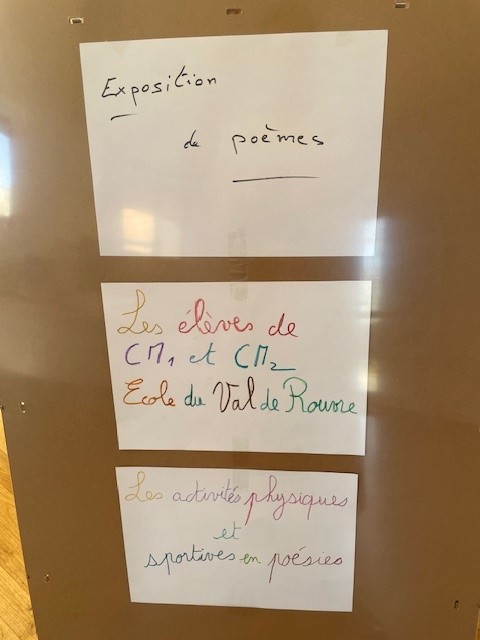 Exposition
de poèmes
Les élèves de
CM1 et CM2
Ecole du Val de Rouvre
Les activités physiques
et
sportives en poésies